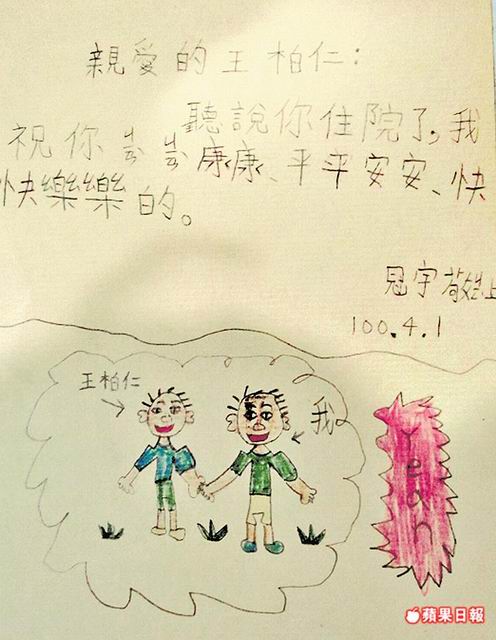 親愛的王柏仁:
聽說你住院了,我
祝你康康、平平安安、快
快樂樂的。
冠宇敬上
100.4.1
王柏仁
我
Yeah
蘋果日報